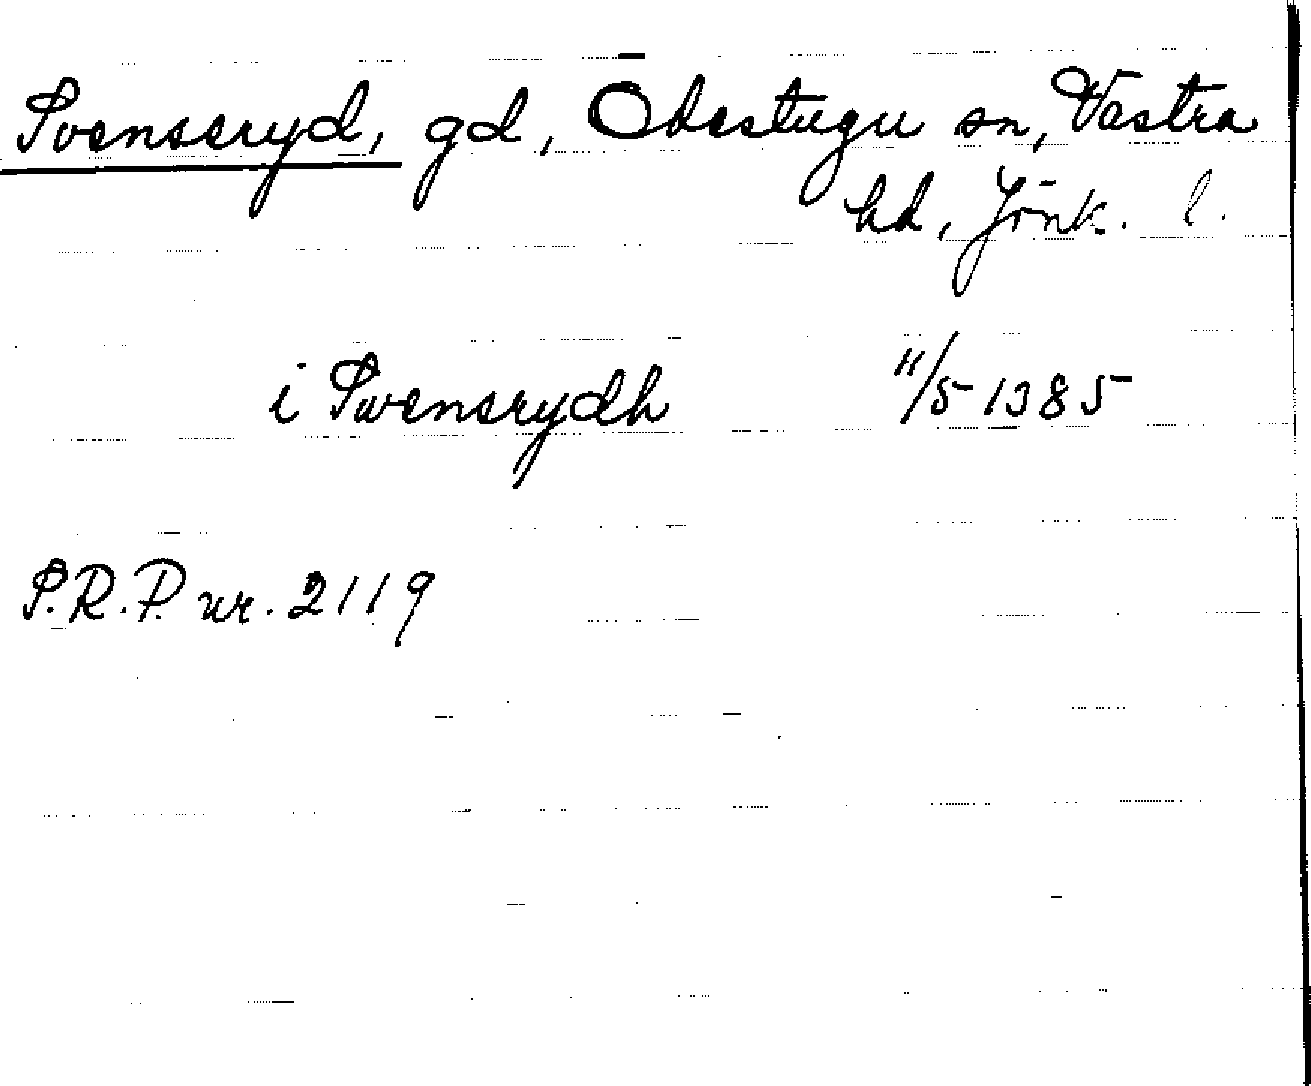 Svenseryd, gd, Öbestugu sn, Västra
hd, Jönk. l.
i Swensrydh 11/5 1385
S.R.P. nr. 2119